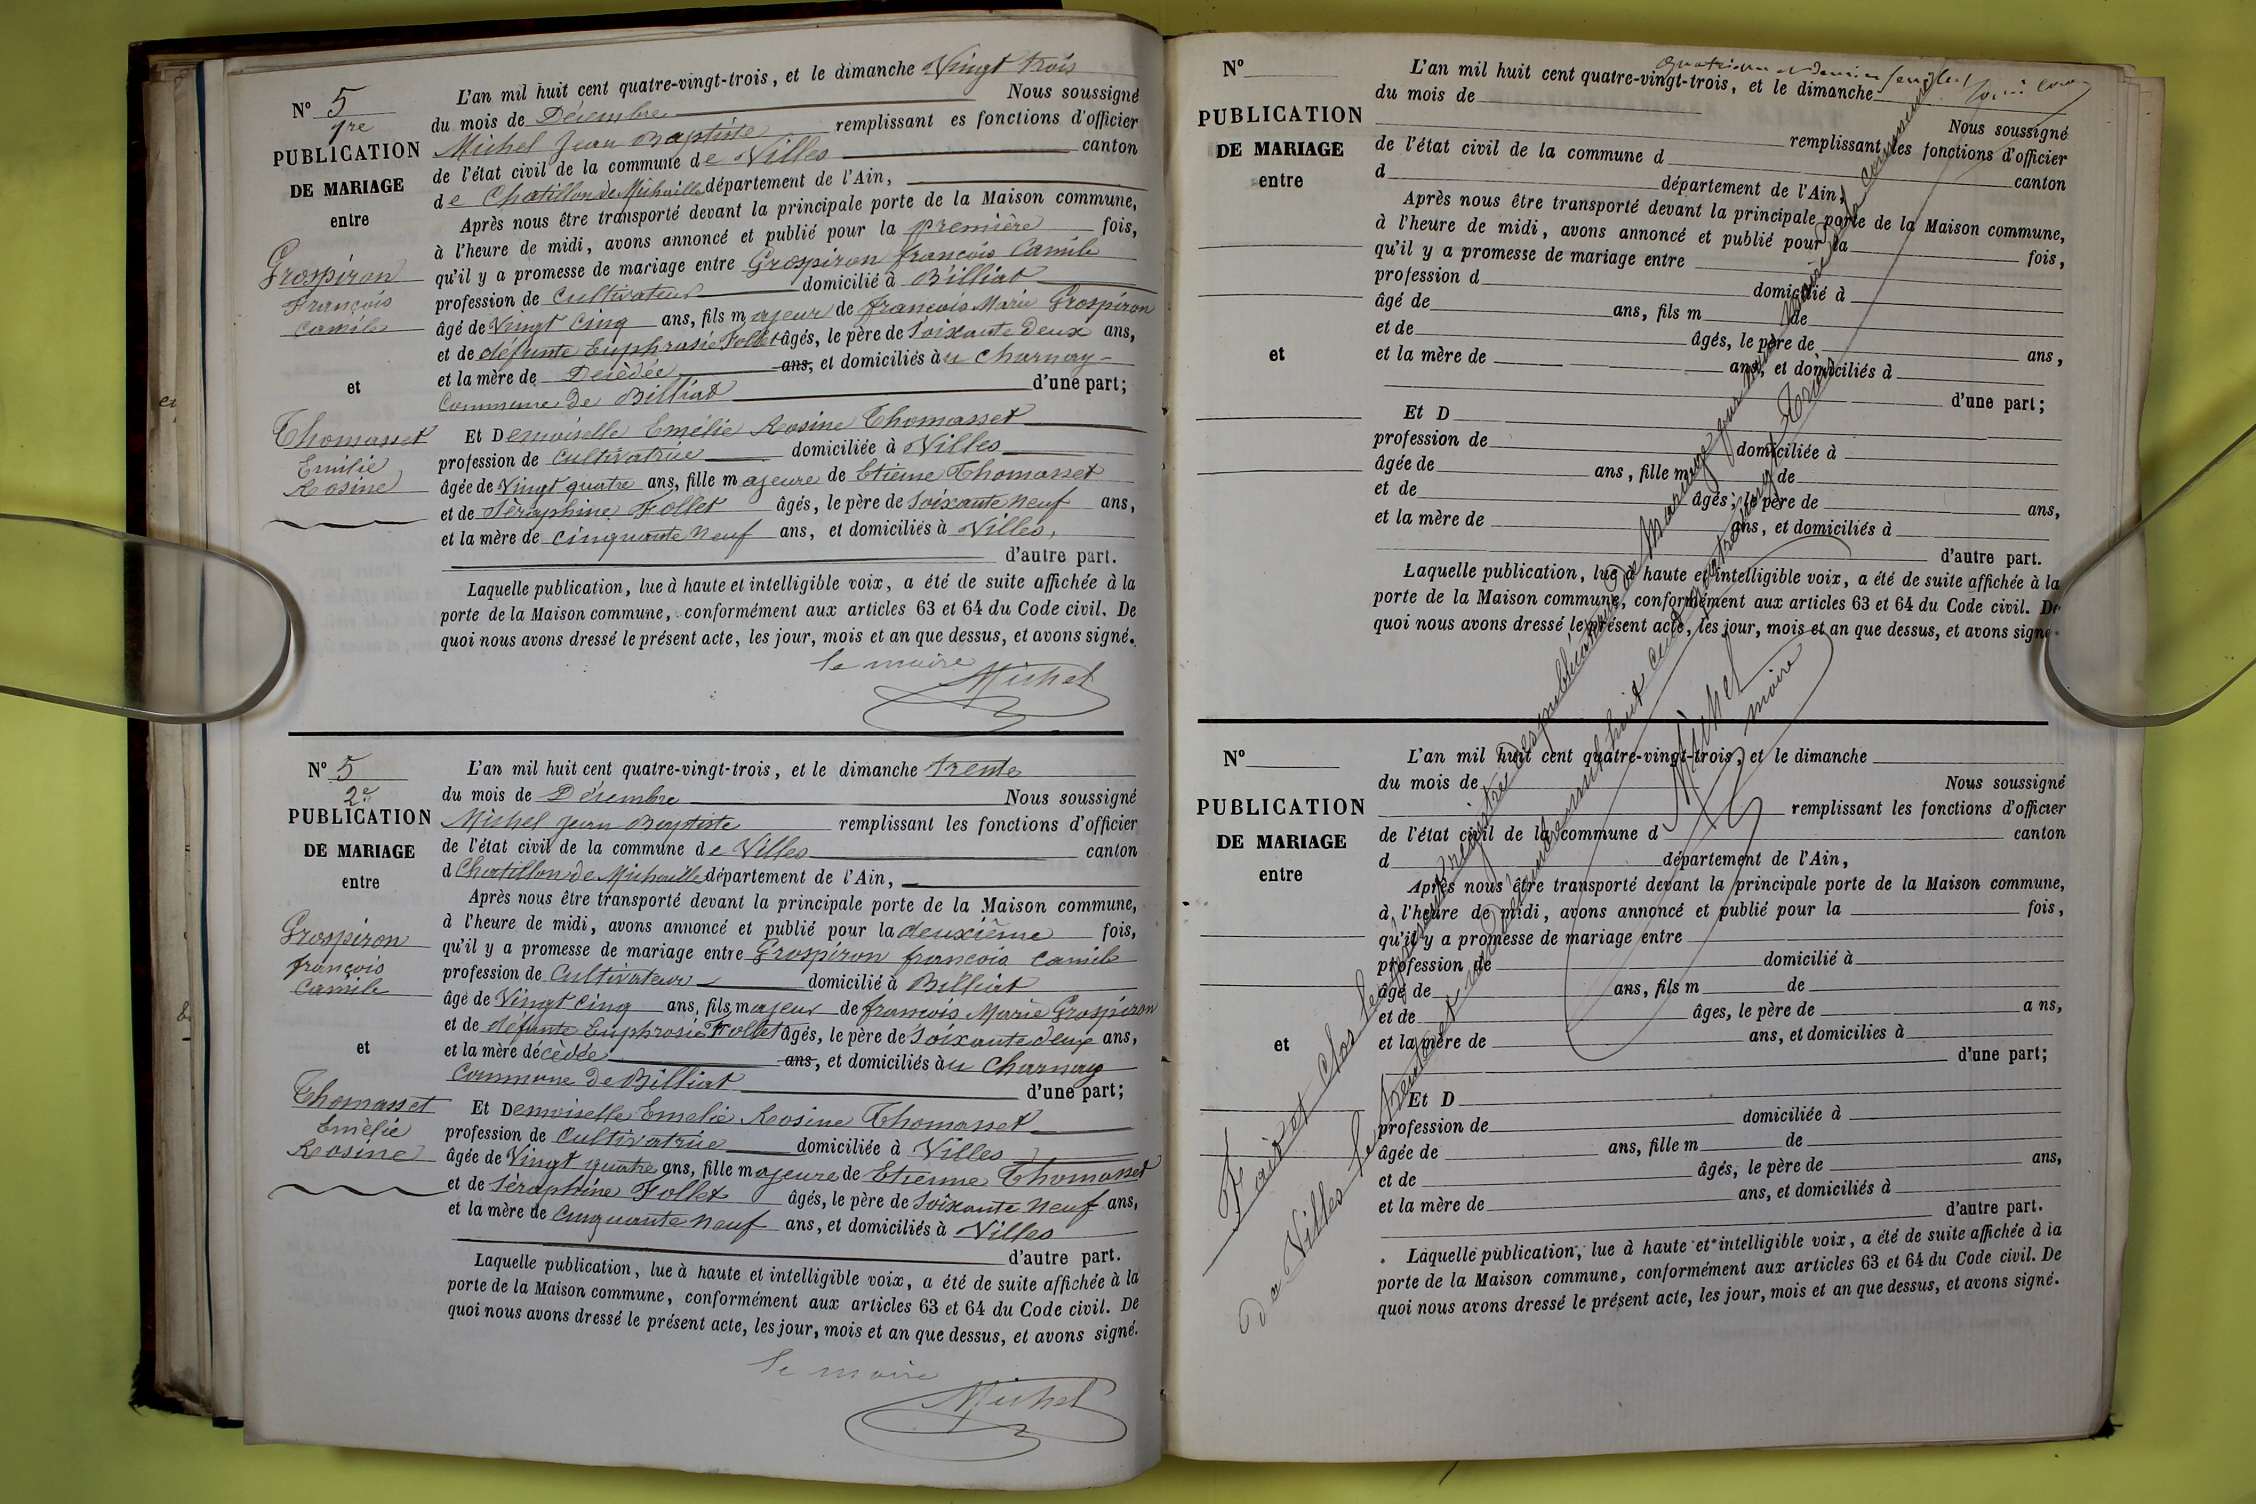 N° 5
1re
PUBLICATION
DE MARIAGE
entre
Grospiron
François
Camile
et
Thomasset
Emilie
Rosine
L'an mil huit cent quatre-vingt-trois, et le dimanche Vingt trois
du mois de Décembre Nous soussigné
Michel Jean Baptiste remplissant es fonctions d'officier
de l'état civil de la commune de Villes canton
de Chatillon de Michaille département de l'Ain,
Après nous être transporté devant la principale porte de la Maison commune,
à l'heure de midi, avons annoncé et publié pour la première fois,
qu'il y a promesse de mariage entre Grospiron françois Camile
profession de Cultivateur domicilié à Billiat
âgé de Vingt Cinq ans, fils majeur de françois Marie Grospiron
et de défunte Euphrosie Follet âgés, le père de Soixante deux ans,
et la mère de Décédée ans, et domiciliés àu Charnay
Commune de Billiat d'une part;
Et Demoiselle Emélie Rosine Thomasset
profession de Cultivatrice domiciliée à Villes
âgée de Vingt quatre ans, fille majeure de Etienne Thomasset
et de Séraphine Follet âgés, le père de Soixante Neuf ans,
et la mère de Cinquante Neuf ans, et domiciliés à Villes,
d'autre part.
Laquelle publication, lue à haute et intelligible voix, a été de suite affichée à la
porte de la Maison commune, conformément aux articles 63 et 64 du Code civil. De
quoi nous avons dressé le présent acte, les jour, mois et an que dessus, et avons signé.
le maire
Michel
N° 5
2e
PUBLICATION
DE MARIAGE
entre
Grospiron
françois
Camile
et
Thomasset
Emélie
Rosine
L'an mil huit cent quatre-vingt-trois, et le dimanche trente
du mois de Décembre Nous soussigné
Michel Jean Baptiste remplissant les fonctions d'officier
de l'état civil de la commune de Villes canton
d Chatillon de Michaille département de l'Ain,
Après nous être transporté devant la principale porte de la Maison commune,
à l'heure de midi, avons annoncé et publié pour la deuxième fois,
qu'il y a promesse de mariage entre Grospiron françois Camile
profession de Cultivateur domicilié à Billiat
âgé de Vingt Cinq ans, fils majeur de françois Marie Grospiron
et de défunte Euphrosie Follet âgés, le père de Soixante deux ans,
et la mère décédée ans, et domiciliés àu Charnay
Commune de Billiat d'une part;
Et Demoiselle Emelie Rosine Thomasset
profession de Cultivatrice domiciliée à Villes
âgée de Vingt quatre ans, fille majeure de Etienne Thomasset
et de Séraphine Follet âgés, le père de Soixante Neuf ans,
et la mère de Cinquante Neuf ans, et domiciliés à Villes
d'autre part.
Laquelle publication, lue à haute et intelligible voix, a été de suite affichée à la
porte de la Maison commune, conformément aux articles 63 et 64 du Code civil. De
quoi nous avons dressé le présent acte, les jour, mois et an que dessus, et avons signé.
le maire
Michel
quatrième et dernier feuillet
N°
PUBLICATION
DE MARIAGE
entre
et
L'an mil huit cent quatre-vingt-trois, et le dimanche
du mois de
Nous soussigné
remplissant les fonctions d'officier
de l'état civil de la commune d
canton
d département de l'Ain,
Après nous être transporté devant la principale porte de la Maison commune,
à l'heure de midi, avons annoncé et publié pour la fois,
qu'il y a promesse de mariage entre
profession d domicilié à
âgé de ans, fils m de
et de âgés, le père de ans,
et la mère de ans, et domiciliés à
d'une part;
Et D
profession de domiciliée à
âgée de ans, fille m de
et de âgés, le père de ans,
et la mère de ans, et domiciliés à
d'autre part.
Laquelle publication, lue à haute et intelligible voix, a été de suite affichée à la
porte de la Maison commune, conformément aux articles 63 et 64 du Code civil. De
quoi nous avons dressé le présent acte, les jour, mois et an que dessus, et avons signé.
Fait et clos le présent registre des publications de Mariage par nous Maire de la commune
de Villes le trente et un Décembre mil huit cent quatre vingt trois
Michel
maire
N°
PUBLICATION
DE MARIAGE
entre
et
L'an mil huit cent quatre-vingt-trois, et le dimanche
du mois de Nous soussigné
remplissant les fonctions d'officier
de l'état civil de la commune d canton
d département de l'Ain,
Après nous être transporté devant la principale porte de la Maison commune,
à l'heure de midi, avons annoncé et publié pour la fois,
qu'il y a promesse de mariage entre
profession de domicilié à
âgé de ans, fils m de
et de âges, le père de ans,
et la mère de ans, et domicilies à
d'une part;
Et D
profession de domiciliée à
âgée de ans, fille m de
et de âgés, le père de ans,
et la mère de ans, et domiciliés à
d'autre part.
Laquelle publication, lue à haute et intelligible voix, a été de suite affichée à la
porte de la Maison commune, conformément aux articles 63 et 64 du Code civil. De
quoi nous avons dressé le présent acte, les jour, mois et an que dessus, et avons signé.